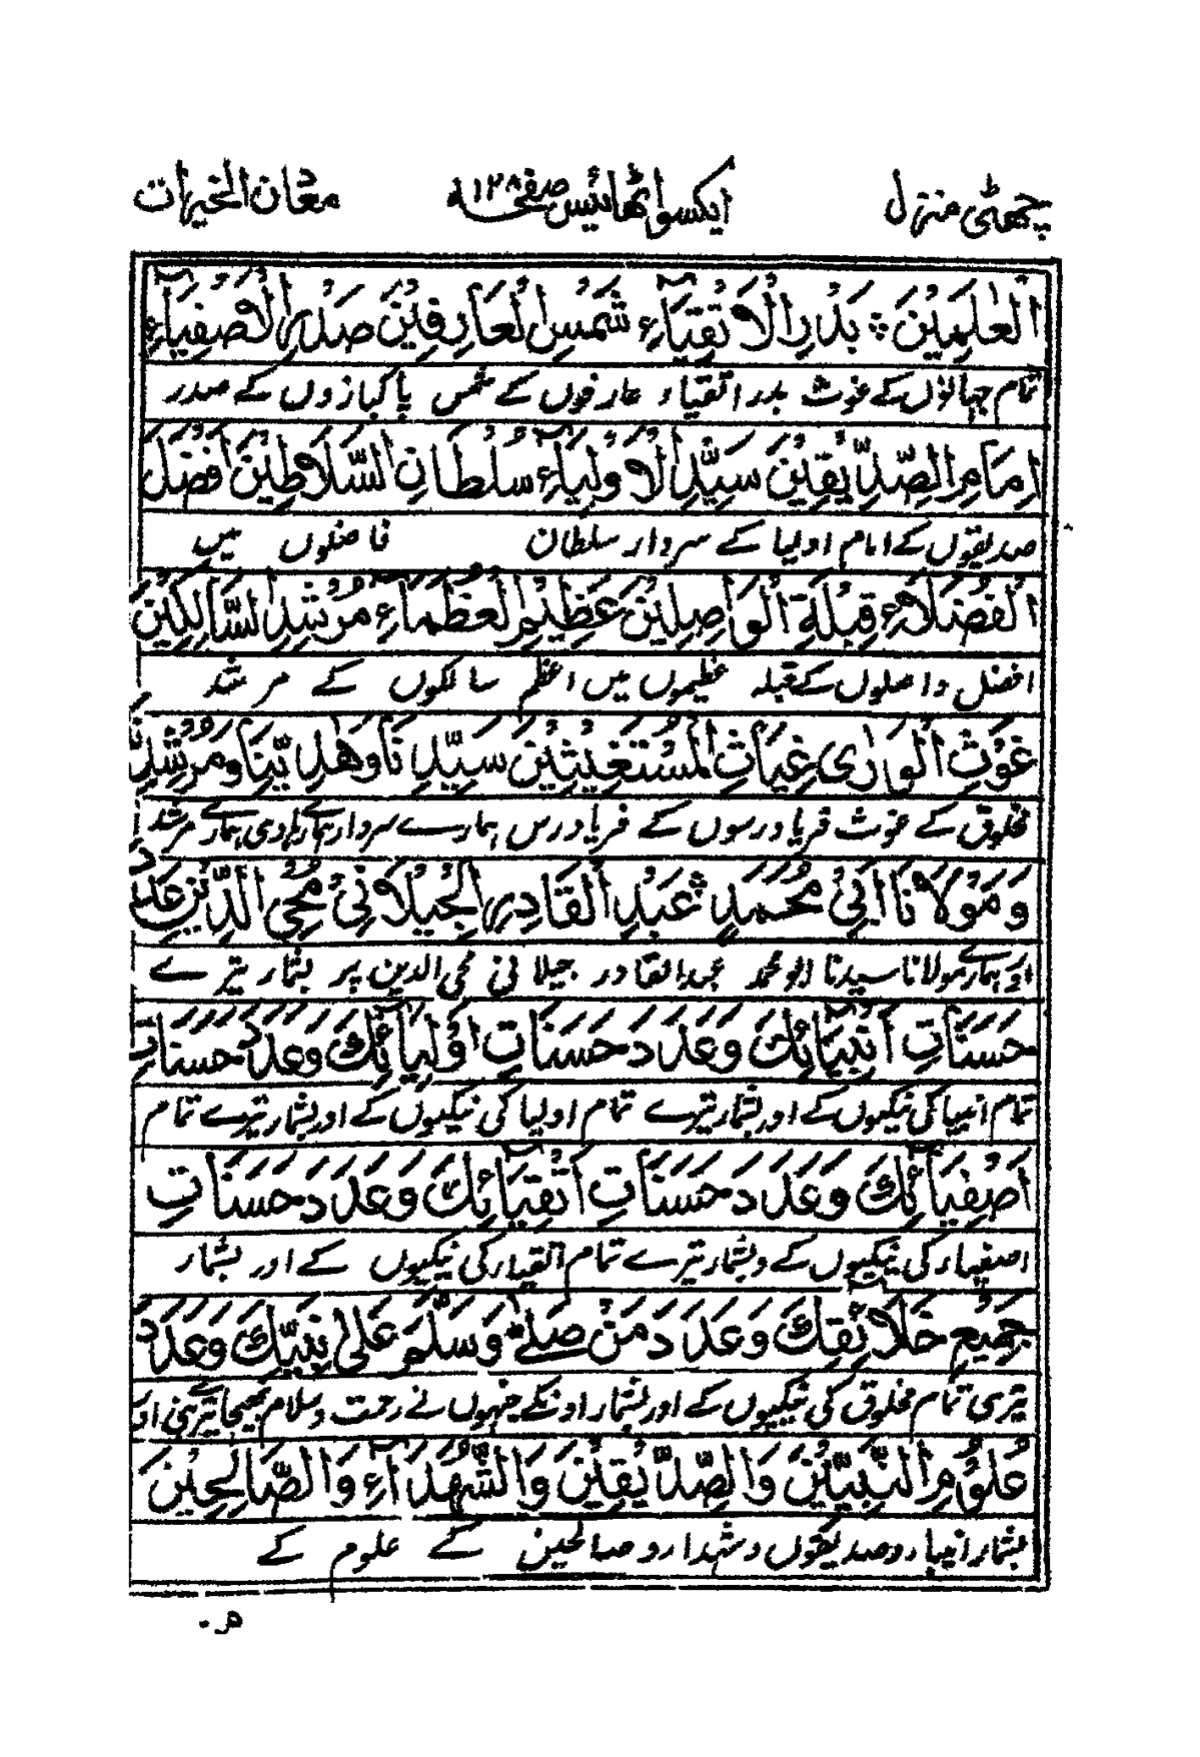 چھٹی منزل ایکسو اٹھائیس صفحہ ۱۲۸ معدن الخیرات
الْعٰلَمِیْنَ ؞ بَدْرِ الْاَتْقِیَآءِ شَمْسِ الْعَارِفِیْنَ صَدْرِ الْاَصْفِیَآءِ
تمام جہانوں کے غوث بدر اتقیاء عارفوں کے شمس پاکبازوں کے صدر
اِمَامِ الصِّدِّیْقِیْنَ سَیِّدِ الْاَوْلِیَآءِ سُلْطَانِ السَّلَاطِیْنَ اَفْضَلِ
صدیقوں کے امام اولیا کے سردار سلطان فاضلوں میں
الْفُضَلَاۤءِ قِبْلَةِ الْوَاصِلِیْنَ عَظِیْمِ الْعُظَمَآءِ مُرْشِدِ السَّالِکِیْنَ
افضل واصلوں کے قبلہ عظیموں میں اعظم سالکوں کے مرشد
غَوْثِ الْوَرٰی غِیَاثِ الْمُسْتَغِیْثِیْنَ سَیِّدِنَا وَهَادِیْنَا وَمُرْشِدِنَا
مخلوق کے غوث فریادرسوں کے فریادرس ہمارے سردار ہمارے ہادی ہمارے مرشد
وَمَوْلَانَا اَبِیْ مُحَمَّدٍ عَبْدِ الْقَادِرِ الْجِیْلَانِیْ مُحْیِ الدِّیْنِ عَدَدَ
اور ہمارے مولانا سیدنا ابو محمد عبدالقادر جیلانی محی الدین پر بشمار تیرے
حَسَنَاتِ اَنْبِیَآئِكَ وَعَدَدَ حَسَنَاتِ اَوْلِیَآئِكَ وَعَدَدَ حَسَنَاتِ
تمام انبیا کی نیکیوں کے اور بشمار تیرے تمام اولیا کی نیکیوں کے اور بشمار تیرے تمام
اَصْفِیَآئِكَ وَعَدَدَ حَسَنَاتِ اَتْقِیَآئِكَ وَعَدَدَ حَسَنَاتِ
اصفیاء کی نیکیوں کے و بشمار تیرے تمام اتقیاء کی نیکیوں کے اور بشمار
جَمِیْعِ خَلَائِقِكَ وَعَدَدَ مَنْ صَلّٰی وَسَلَّمَ عَلٰی نَبِیِّكَ وَعَدَدَ
تیری تمام مخلوق کی نیکیوں کے اور بشمار اونکے جنہوں نے رحمت و سلام بھیجا تیرے نبی اور
عُلُوْمِ النَّبِیِّیْنَ وَالصِّدِّیْقِیْنَ وَالشُّهَدَآءِ وَالصَّالِحِیْنَ
بشمار انبیاء و صدیقوں و شہداء و صالحین کے علوم کے